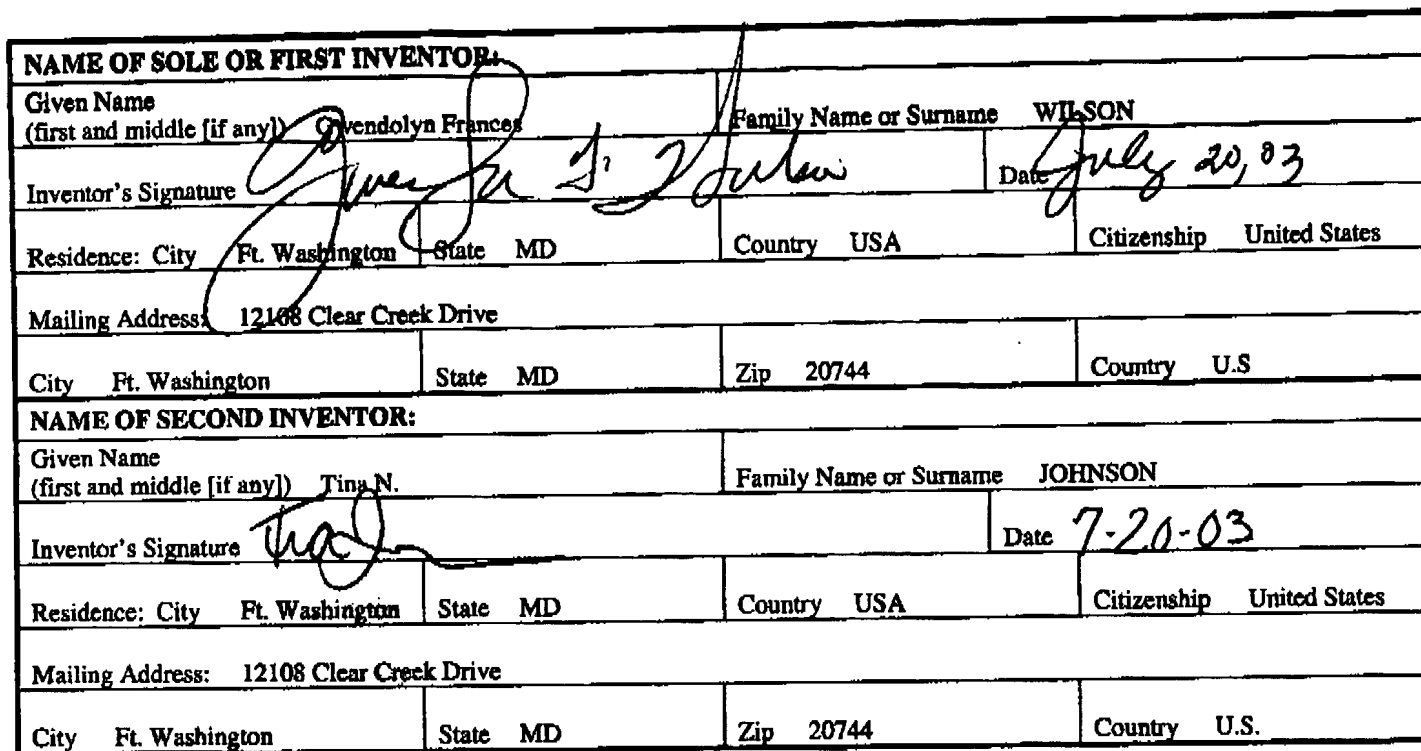 NAME OF SOLE OR FIRST INVENTOR:
Given Name
(first and middle [if any]) Gwendolyn Frances Family Name or Surname WILSON
Inventor's Signature Date July 20, 03
Residence: City Ft. Washington State MD Country USA Citizenship United States
Mailing Address: 12108 Clear Creek Drive
City Ft. Washington State MD Zip 20744 Country U.S
NAME OF SECOND INVENTOR:
Given Name
(first and middle [if any]) Tina N. Family Name or Surname JOHNSON
Inventor's Signature Date 7-20-03
Residence: City Ft. Washington State MD Country USA Citizenship United States
Mailing Address: 12108 Clear Creek Drive
City Ft. Washington State MD Zip 20744 Country U.S.